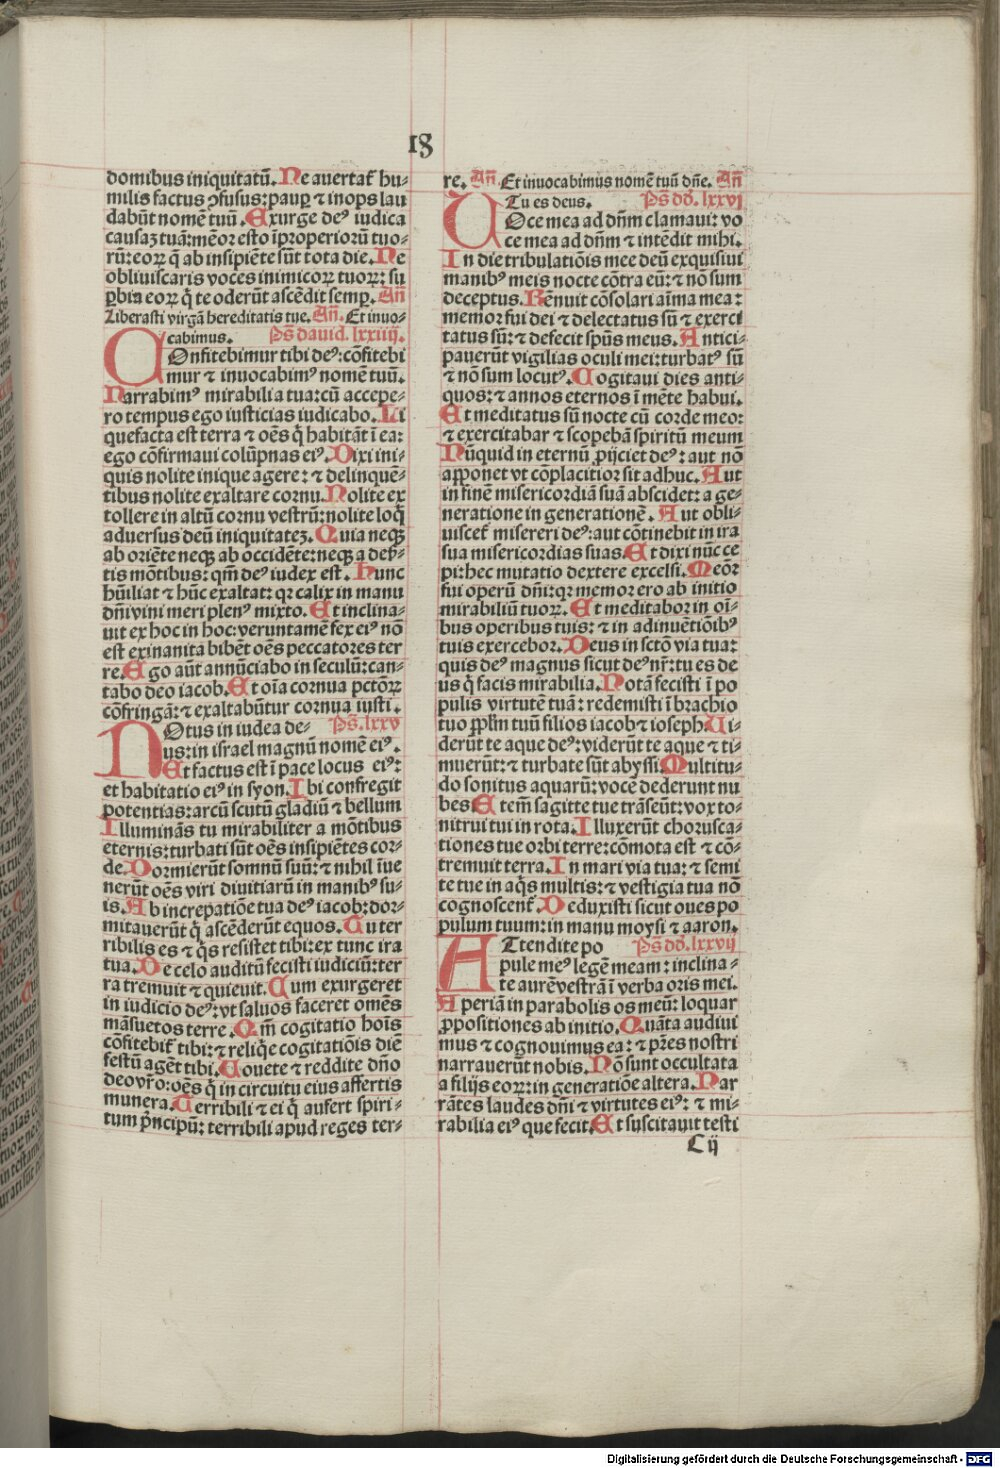 18
domibus iniquitatū. Ne auertat᷑ hu-
milis factus ꝯfusus: paup̱ ⁊ inops lau
dabūt nomē tuū. Exurge deꝰ iudica
causaꝫ tuā: mēor esto īproperioꝝ tuo-
rū: eoꝝ q̄ ab insipiēte sūt tota die. Ne
obliuiscaris voces inimicoꝝ tuoꝝ: su
ꝑbia eoꝝ q̄ te oderūt ascēdit semꝑ. Añ
Liberasti virgā hereditatis tue. Añ. Et inuo-
cabimus. Ps̄ dauid. lxxiiij.
COnfitebimur tibi deꝰ: cōfitebi
mur ⁊ inuocabimꝰ nomē tuū.
Narrabimꝰ mirabilia tua: cū accepe-
ro tempus ego iusticias iudicabo. Li
quefacta est terra ⁊ oēs q̄ habitāt ī ea:
ego cōfirmaui colūpnas eiꝰ. Dixi ini-
quis nolite inique agere: ⁊ delinquē-
tibus nolite exaltare cornu. Nolite ex
tollere in altū cornu vestrū: nolite loq̄
aduersus deū iniquitateꝫ. Quia neqꝫ
ab oriēte neqꝫ ab occidēte: neqꝫ a des̄-
tis mōtibus: qm̄ deꝰ iudex est. Hunc
hūiliat ⁊ hūc exaltat: qꝛ calix in manu
dn̄i vini meri plenꝰ mixto. Et inclina-
uit ex hoc in hoc: veruntamē fex eiꝰ nō
est exinanita bibēt oēs peccatores ter
re. Ego aūt annūciabo in seculū: can-
tabo deo iacob. Et oīa cornua pctōꝝ
cōfringā: ⁊ exaltabūtur cornua iusti.
NOtus in iudea de- Ps̄. lxxv
us: in israel magnū nomē eiꝰ.
Et factus est ī pace locus eiꝰ:
et habitatio eiꝰ in syon. Ibi confregit
potentias: arcū scutū gladiū ⁊ bellum
Illuminās tu mirabiliter a mōtibus
eternis: turbati sūt oēs insipiētes cor-
de. Dormierūt somnū suū: ⁊ nihil īue
nerūt oēs viri diuitiarū in manibꝰ su-
is. Ab increpatiōe tua deꝰ iacob: dor-
mitauerūt q̄ ascēderūt equos. Tu ter
ribilis es ⁊ q̄s resistet tibi: ex tunc ira
tua. De celo auditū fecisti iudiciū: ter
ra tremuit ⁊ quieuit. Cum exurgeret
in iudicio deꝰ: vt saluos faceret omēs
māsuetos terre. Qm̄ cogitatio hoīs
cōfitebit᷑ tibi: ⁊ reliq̄e cogitatiōis diē
festū agēt tibi. Uouete ⁊ reddite dn̄o
deo vr̄o: oēs q̄ in circuitu eius affertis
munera. Terribili ⁊ ei q̄ aufert spiri-
tum pn̄cipū: terribili apud reges ter-
re. Añ. Et inuocabimus nomē tuū dn̄e. Añ
Tu es deus. Ps̄ dd̄. lxxvj
UOce mea ad dn̄m clamaui: vo
ce mea ad dn̄m ⁊ intēdit mihi.
In die tribulatiōis mee deū exquisiui
manibꝰ meis nocte cōtra eū: ⁊ nō sum
deceptus. Rēnuit cōsolari aīma mea:
memor fui dei ⁊ delectatus sū ⁊ exerci
tatus sū: ⁊ defecit spūs meus. Antici-
pauerūt vigilias oculi mei: turbatꝰ sū
⁊ nō sum locutꝰ. Cogitaui dies anti-
quos: ⁊ annos eternos ī mēte habui.
Et meditatus sū nocte cū corde meo:
⁊ exercitabar ⁊ scopebā spiritū meum
Nūquid in eternū ꝓijciet deꝰ: aut nō
apponet vt cōplacitior sit adhuc. Aut
in finē misericordiā suā abscidet: a ge-
neratione in generationē. Aut obli-
uiscet᷑ misereri deꝰ: aut cōtinebit in ira
sua misericordias suas. Et dixi nūc ce
pi: hec mutatio dextere excelsi. Mēor
fui operū dn̄i: qꝛ memor ero ab initio
mirabiliū tuoꝝ. Et meditabor in oī-
bus operibus tuis: ⁊ in adinuētiōibꝰ
tuis exercebor. Deus in sctō via tua:
quis deꝰ magnus sicut deꝰ nr̄: tu es de
us q̄ facis mirabilia. Notā fecisti ī po
pulis virtutē tuā: redemisti ī brachio
tuo pp̄lm̄ tuū filios iacob ⁊ ioseph. Ui-
derūt te aque deꝰ: viderūt te aque ⁊ ti-
muerūt: ⁊ turbate sūt abyssi. Multitu-
do sonitus aquarū: vocē dederunt nu
bes. Etem̄ sagitte tue trāseūt: vox to-
nitrui tui in rota. Illuxerūt chorusca-
tiones tue orbi terre: cōmota est ⁊ cō-
tremuit terra. In mari via tua: ⁊ semi
te tue in aq̄s multis: ⁊ vestigia tua nō
cognoscent᷑. Deduxisti sicut oues po
pulum tuum: in manu moysi ⁊ aaron.
ATtendite po Ps̄ dd̄. lxxvij
pule meꝰ legē meam: inclina-
te aurē vestrā ī verba oris mei.
Aperiā in parabolis os meū: loquar
ꝓpositiones ab initio. Quāta audiui
mus ⁊ cognouimus ea: ⁊ pr̄es nostri
narrauerūt nobis. Nō sunt occultata
a filijs eoꝝ: in generatiōe altera. Nar
rātes laudes dn̄i ⁊ virtutes eiꝰ: ⁊ mi-
rabilia eiꝰ que fecit. Et suscitauit testi
C ij
Digitalisierung gefördert durch die Deutsche Forschungsgemeinschaft - DFG